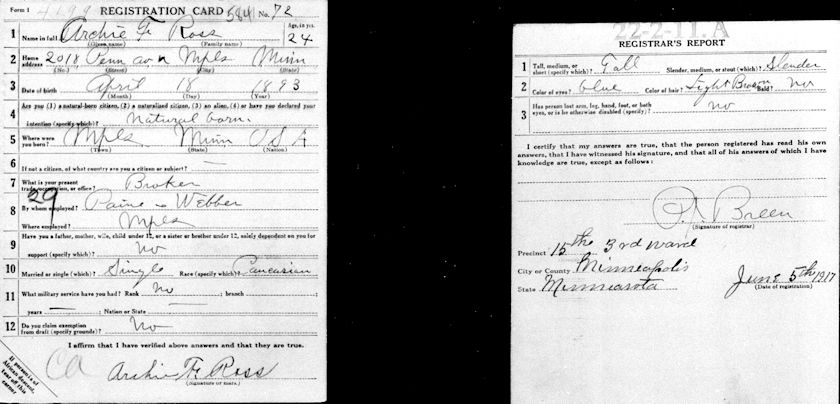 Form 1 4199 REGISTRATION CARD 584 No. 72
1 Name in full Archie F. Ross Age, in yrs. 24
(Given name) (Family name)
2 Home address 2018 Penn av n Mpls Minn
(No.) (Street) (City) (State)
3 Date of birth April 18 1893
(Month) (Day) (Year)
4 Are you (1) a natural-born citizen, (2) a naturalized citizen, (3) an alien, (4) or have you declared your
intention (specify which)? Natural born.
5 Where were you born? Mpls Minn USA
(Town) (State) (Nation)
6 If not a citizen, of what country are you a citizen or subject? —
7 What is your present trade, occupation, or office? Broker
29
8 By whom employed? Paine & Webber
Where employed? Mpls
9 Have you a father, mother, wife, child under 12, or a sister or brother under 12, solely dependent on you for
support (specify which)? No
10 Married or single (which)? Single Race (specify which)? Caucasian
11 What military service have you had? Rank No ; branch —
years — ; Nation or State —
12 Do you claim exemption from draft (specify grounds)? No
I affirm that I have verified above answers and that they are true.
CA
Archie F. Ross
If person is of
African descent,
tear off this
corner
22-2-11. A
REGISTRAR'S REPORT
1 Tall, medium, or short (specify which)? Tall Slender, medium, or stout (which)? Slender
2 Color of eyes? blue Color of hair? Light Brown Bald? No
3 Has person lost arm, leg, hand, foot, or both
eyes, or is he otherwise disabled (specify)? no
I certify that my answers are true, that the person registered has read his own
answers, that I have witnessed his signature, and that all of his answers of which I have
knowledge are true, except as follows:
Breen
(Signature of registrar)
Precinct 15th 3rd ward
City or County Minneapolis
State Minnesota June 5th 1917
(Date of registration)